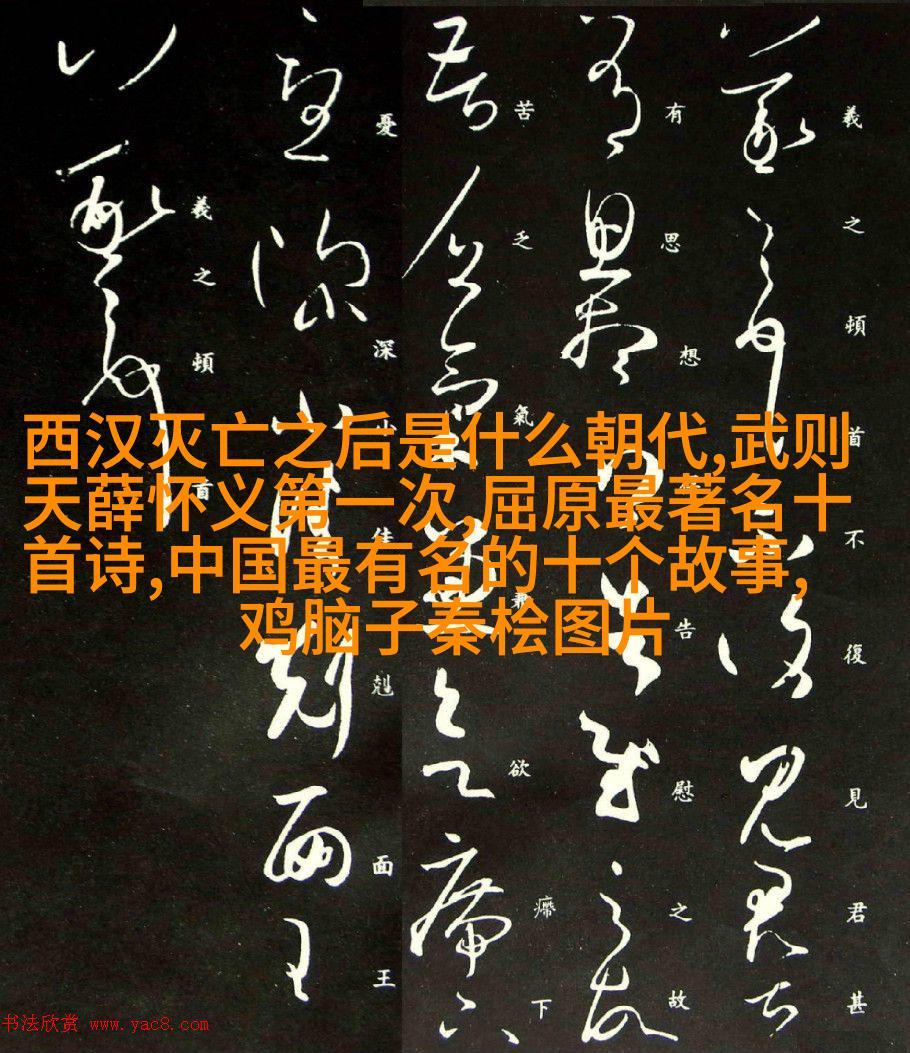 西汉灭亡之后是什么朝代,武则
天薛怀义第一次,屈原最著名十
首诗,中国最有名的十个故事,
鸡脑子秦桧图片
羲之頓首不復見君甚
有思想告慰之故
苦乏氣兼欲㿃下
憂深小佳剋面王
羲之頓首
书法欣赏 www.yac8.com